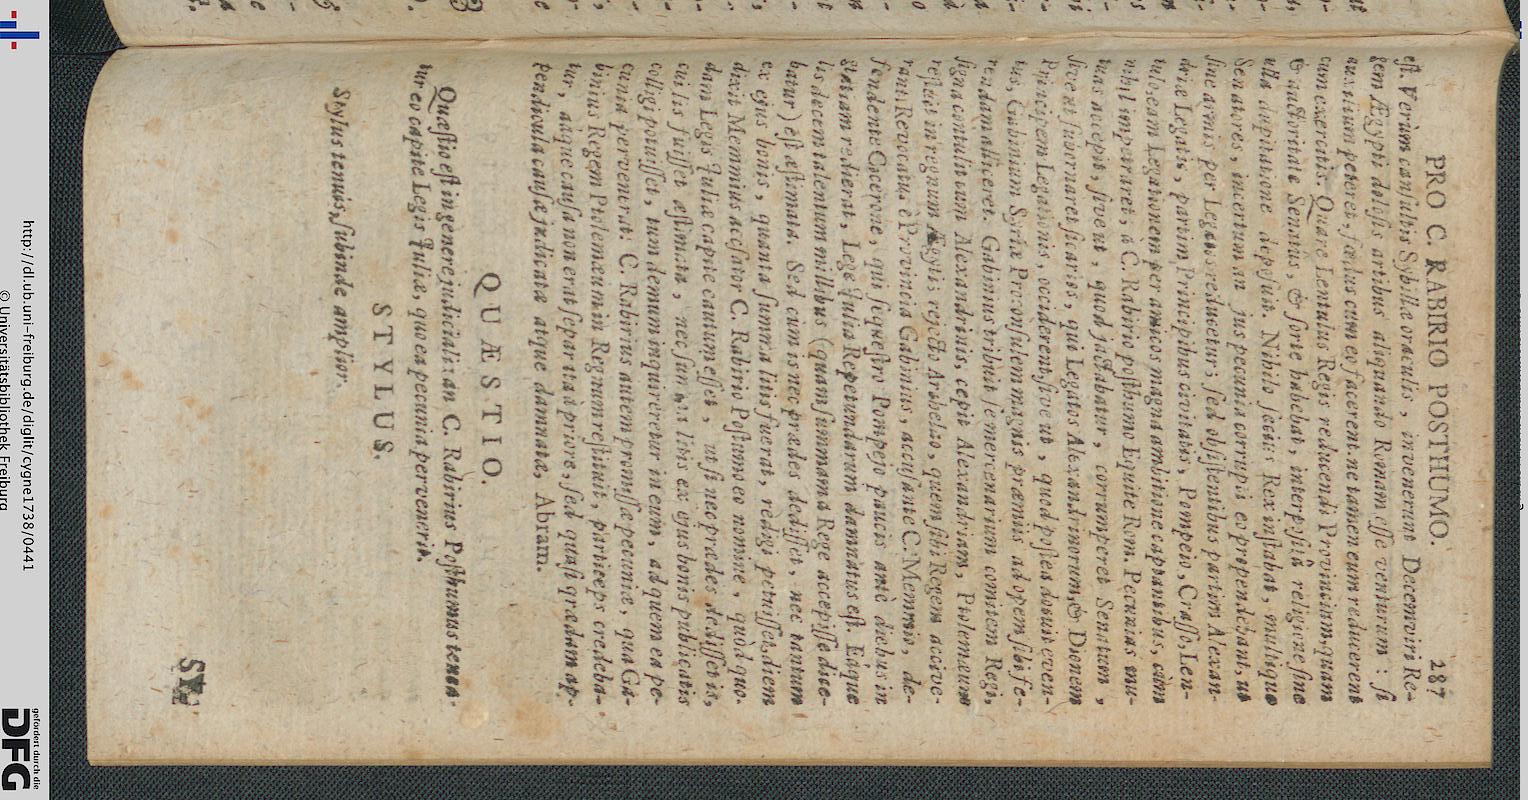 PRO C. RABIRIO POSTHUMO. 287
est. Verùm cum libris Sybillæ oraculis, invenerunt Decemviri Re-
gem Ægypti dolosis artibus aliquando Romam esse venturum: si
auxilium peteret, fœdus cum eo facerent, ne tamen eum reducerent
cum exercitu. Quare Lentulus Regis reducendi Provinciam, quam
& auctoritate Senatus, & sorte habebat, interposita religione sine
ulla dubitatione deposuit. Nihilo secius Rex instabat, multique
Senatores, incertum an jus pecunia corrupti eo propendebant, ut
sine armis per Legatos reducetur; sed obsistentibus partim Alexan-
driæ Legatis, partim Principibus civitatis, Pompeio, Crasso, Len-
tulo, eam Legationem per amicos magna ambitione captantibus, cùm
nihil impararet, à C. Rabirio posthumo Equite Rom. Pecunias mu-
tuas accepit, sive ut, quod jactabatur, corrumperet Senatum,
sive ut subornaret sicarios, qui Legatos Alexandrinorum, & Dionem
Principem Legationis, occiderent, sive ut, quod postea docuit even-
tus, Gabinium Syriæ Proconsulem magnis præmiis ad opem sibi fe-
rendam alliceret. Gabinius tribuit se mercenarium comitem Regi,
signa contulit cum Alexandrinis, cepit Alexandriam, Ptolemæum
restituit in regnum Ægypti, rejecto Archelao, quem sibi Regem accive-
rant. Revocatus è Provincia Gabinius, accusante C. Memmio, de-
fendente Cicerone, qui sequestro Pompejo paucis antè diebus in
gratiam redierat, Lege Julia Repetundarum damnatus est. Eáque
lis decem talentum millibus (quam summam à Rege accepisse dice-
batur) est æstimata. Sed cum is nec prædes dedisset, nec tantum
ex ejus bonis, quanta summa litis fuerat, redigi potuisset, diem
dixit Memmius accusator C. Rabirio Postumo eo nomine, quòd quo-
dam Legis Juliæ capite cautum esset, ut si nec prædes dedisset is,
cui lis fuisset æstimata, nec summa litis ex ejus bonis publicatis
colligi potuisset, tum demum inquireretur in eum, ad quem ea pe-
cunia pervenerat. C. Rabirius autem promissæ pecuniæ, qua Ga-
binius Regem Ptolemæum in Regnum restituit, particeps credeba-
tur, atque causa non erat separata à priore, sed quasi quædam ap-
pendicula causæ judicatæ atque damnatæ, Abram.
QUÆSTIO.
Quæstio est in genere judiciali: an C. Rabirius Posthumus tenea-
tur eo capite Legis Juliæ, quo ea pecunia pervenerit.
STYLUS.
Stylus tenuis, subinde amplior.
SY-
http://dl.ub.uni-freiburg.de/diglit/cygne1738/0441
© Universitätsbibliothek Freiburg
gefördert durch die
DFG